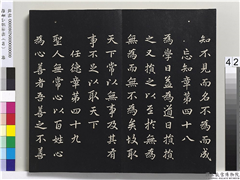 知不見而名不為而成
忘知章第四十八
為學日益為道日損損
之又損之以至於無為
無為而無不為矣故取
天下常以無事及其有
事不足以取天下
任德章第四十九
聖人無常心以百姓心
為心善者吾善之不善
42